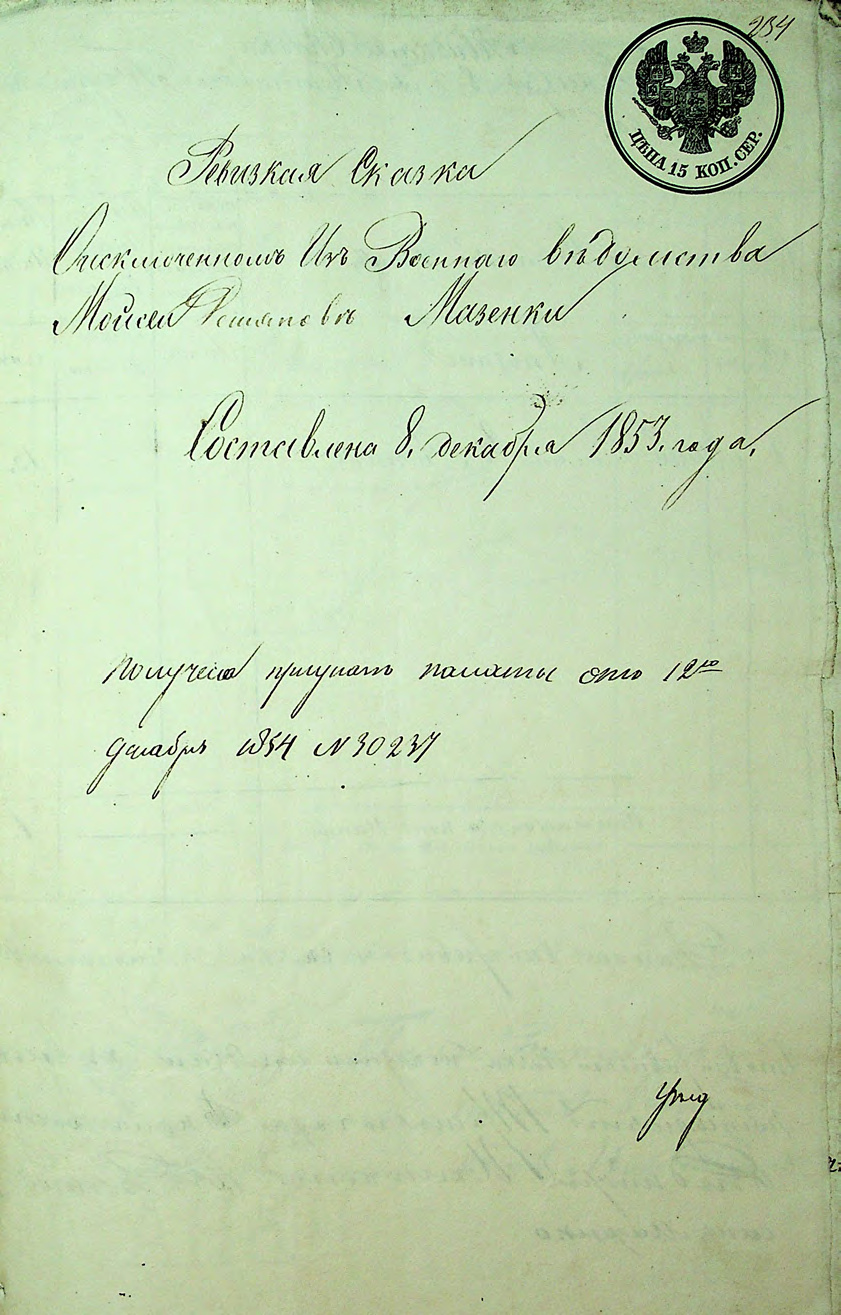 234
ЦѢНА 15 КОП. СЕР.
Ревизкая Сказка
Оисключенномъ Изъ Военнаго вѣдомства
Мойсеи Мазенки
Составлена 8. декабря 1853. года,
Получена палаты отъ 12го
декабря 1854 N 30237